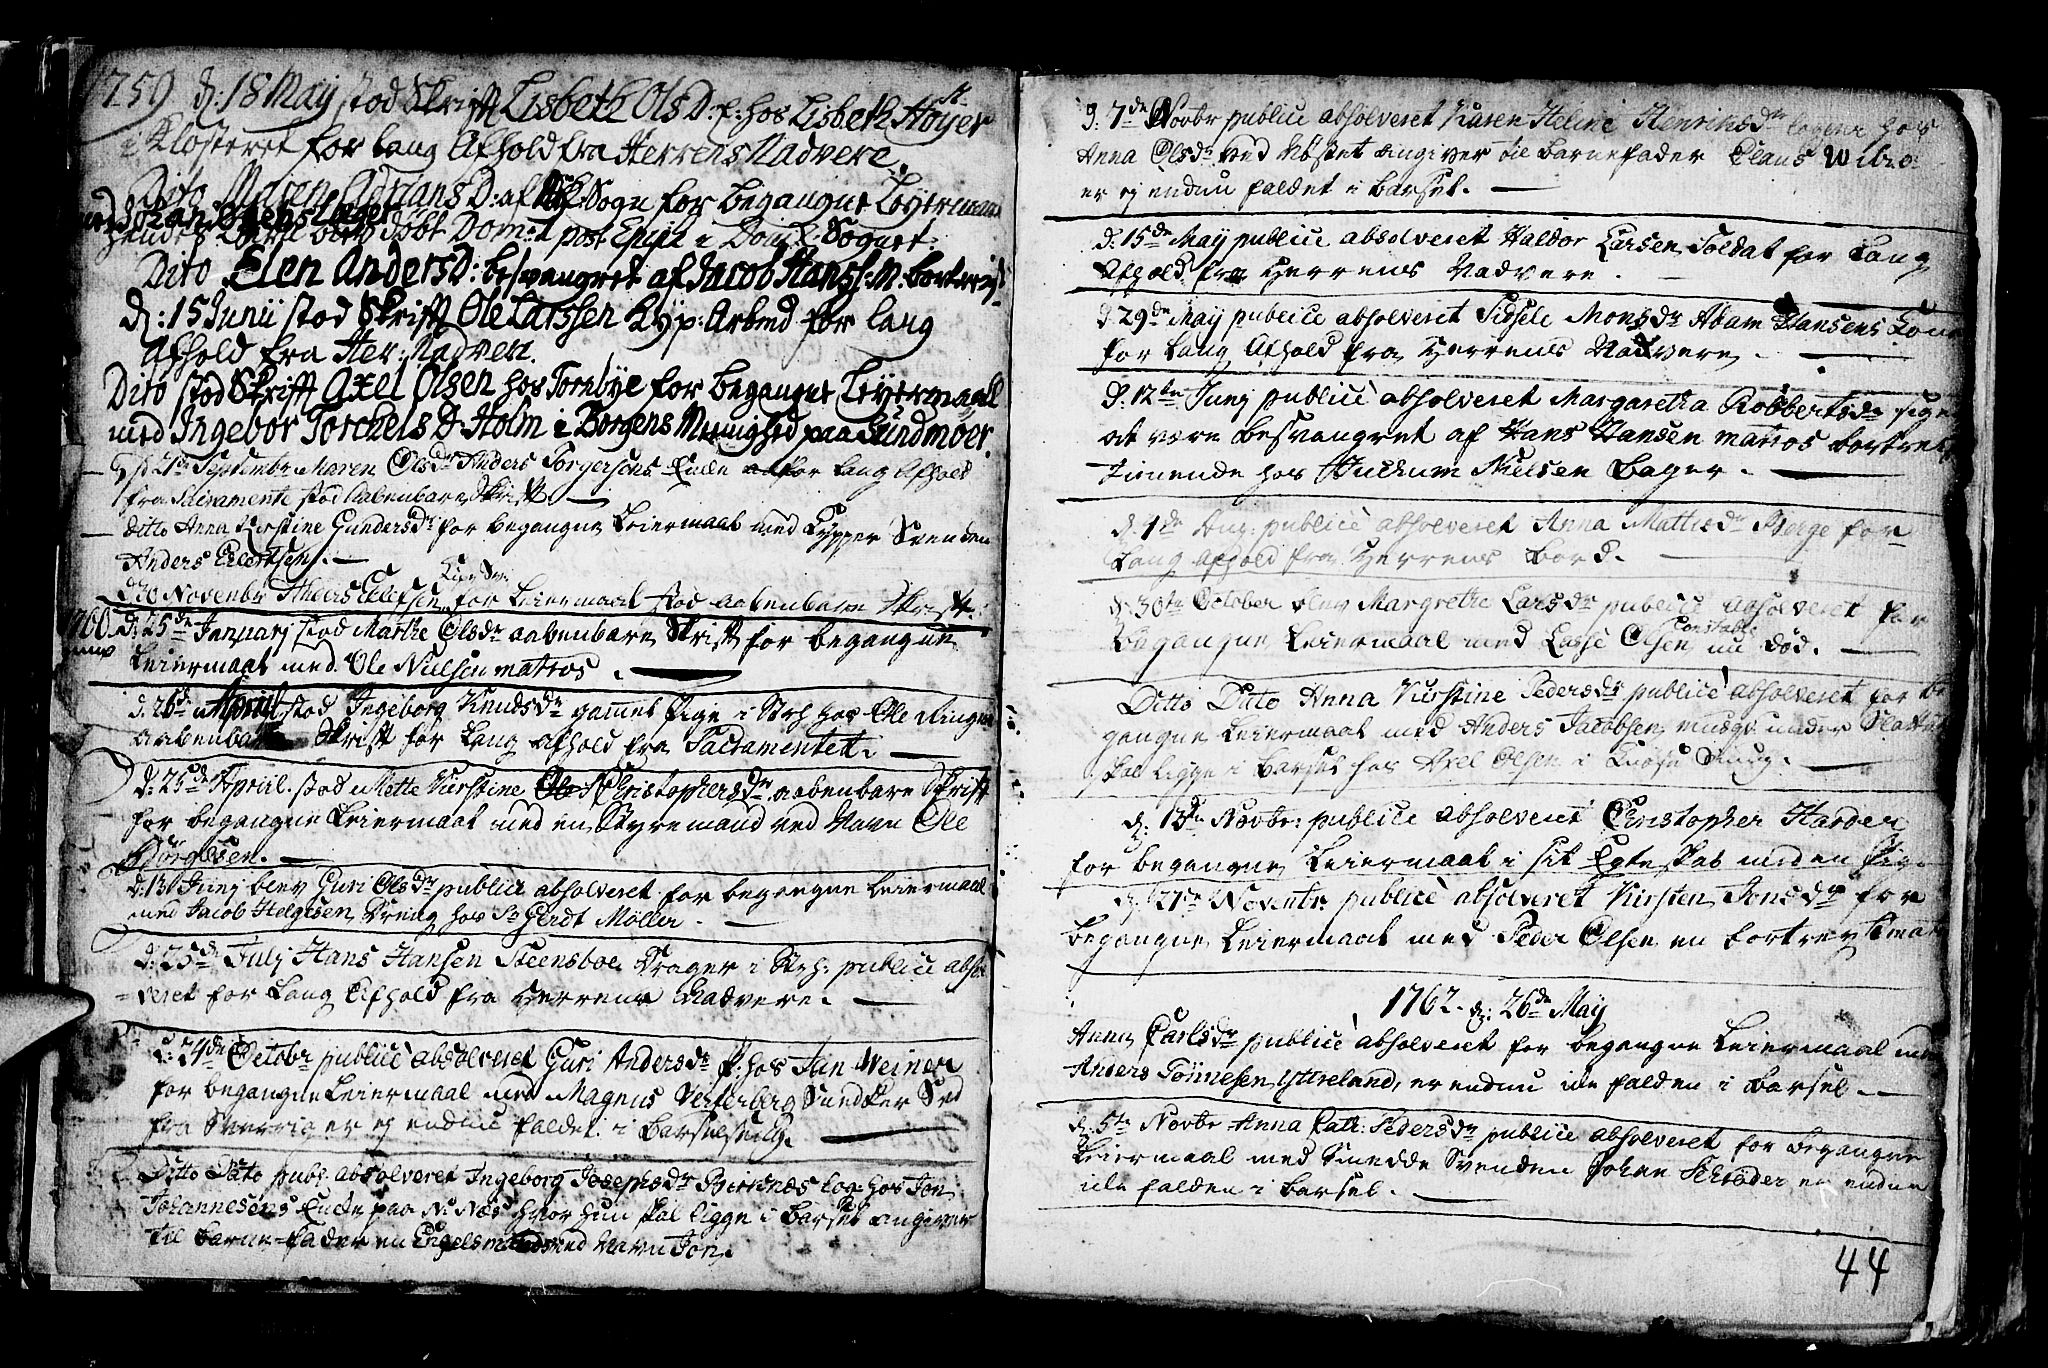 1759 d: 18 May stod Skrifft Lisbeth OlsD. f: hos Lisbeth Høyer
i Klosteret for lang Afhold fra Herrens Nadvere.
Dito Maren AdriansD: af Sogn for begangne Leyermaal
hendes blev døbt Dom post Epiph i Sognet.
Dito Elen AndersD: besvangret af Jacob Hanss: M. bortreist
d: 15 Junii stod Skrifft Ole Larssen Kyp: Arbeid for lang
Afhold fra Her: Nadvere.
Dito stod Skrifft Axel Olsen hos Tornbye for begangne Leyermaall
med Ingebor Torchels D Holm i Borgens Menighed paa Sundmøer.
Septembr Maren Olsdr Anders Torgersens Enke for lang Afhold
fra Sacramente stod aabenbare Skrift
Ditto Anna Kirstine Gundersdr for begangne Leiermaal med Kypper Svenden
Anders Eilertsen. —
d 30 Novembr Anders Ellefsen Kyp: Sv: for Leiermaal stod aabenbare Skrift.
1760 d: 25de Januarj stod Marthe Olsdr aabenbare Skrift for begangne
Leiermaal med Ole Nielsen matros . —
d. 26de April stod Ingeborg Knudsdr gammel Pige i Strh hos Ole
aabenbare Skrift for Lang afhold fra Sacramentet. —
d: 25de April. stod Mette Kirstine Christophersdr aabenbare Skrift
for begangne Leiermaal med en Styremand ved Navn Ole
Børgesen. —
d: 13 Junj blev Guri Olsdr publice absolveret for begangne Leiermaal
med Jacob Helgesen Dreng hos Sr Gerdt Møller. —
d: 25de Julj Hans Hansen Steensboe Drager i Strh: publice absol
=veret for Lang Afhold fra Herrens Nadvere. —
d: 24de Octobr publice absolveret Guri Andersdr P: hos Jan Weiner
for begangne Leiermaal med Magnus Vesterberg Snedker Svd
fra Sverrig er ej endnu falden i Barselseng. —
Ditto Dito publ. absolveret Ingeborg Josephsdr log: hos Jon
Johannesens Enke paa N: Næs hvor hun skal ligge i Barsel angiver
til Barne-fader en Engelsmand ved Navn Jon.
d. 7de Novbr publice absolveret Karen Heline Henriksdr logerer hos
Anna Olsdr ved Klostret angiver til Barnefader Claus Wibro:
er ej endnu faldet i Barsel. —
d: 15de May publice absolveret Haldor Larsen Soldat for Lang
Afhold fra Herrens Nadvere . —
d. 29de May publice absolveret Sidsele Monsdr Adam Hansens Kone
for Lang Afhold fra Herrens Nadvere. —
d: 12te Junj publice absolveret Margaretha Robbertsdr sige
at være besvangret af Hans Hansen matros bortreist
tienende hos Nielsen Bager. —
d. 1de Aug. publice absolveret Anna Mattisdr Berge for
Lang afhold fra Herrens Bord. —
d. 30te October blev Margrethe Larsdr publice absolveret for
begangne Leiermaal med Lasse Olsen Constabel nu død. —
Ditto Dito Anna Kirstine Pedersdr publice absolveret for be
gangne Leiermaal med Anders Jacobsen under
skal ligge i Barsel hos Axel Olsen i —
d: 13de Novbr: publice absolveret Christopher Harder
for begangne Leiermaal i sit Egteskab med en Pige
d. 27de Novembr: publice absolveret Kirsten Jonsdr for
begangne Leiermaal med Peder Olsen en bortreist mat
1762. d: 26de May
Anna Carlsdr publice absolveret for begangne Leiermaal med
Anders Tønnesen Ytreland, er endnu ike falden i Barsel —
d. 5te Novbr Anna Cath: Pedersdr publice absolveret for begangne
Leiermaal med Smedde Svenden Johan Schrøder er endnu
ike falden i Barsel. —
44